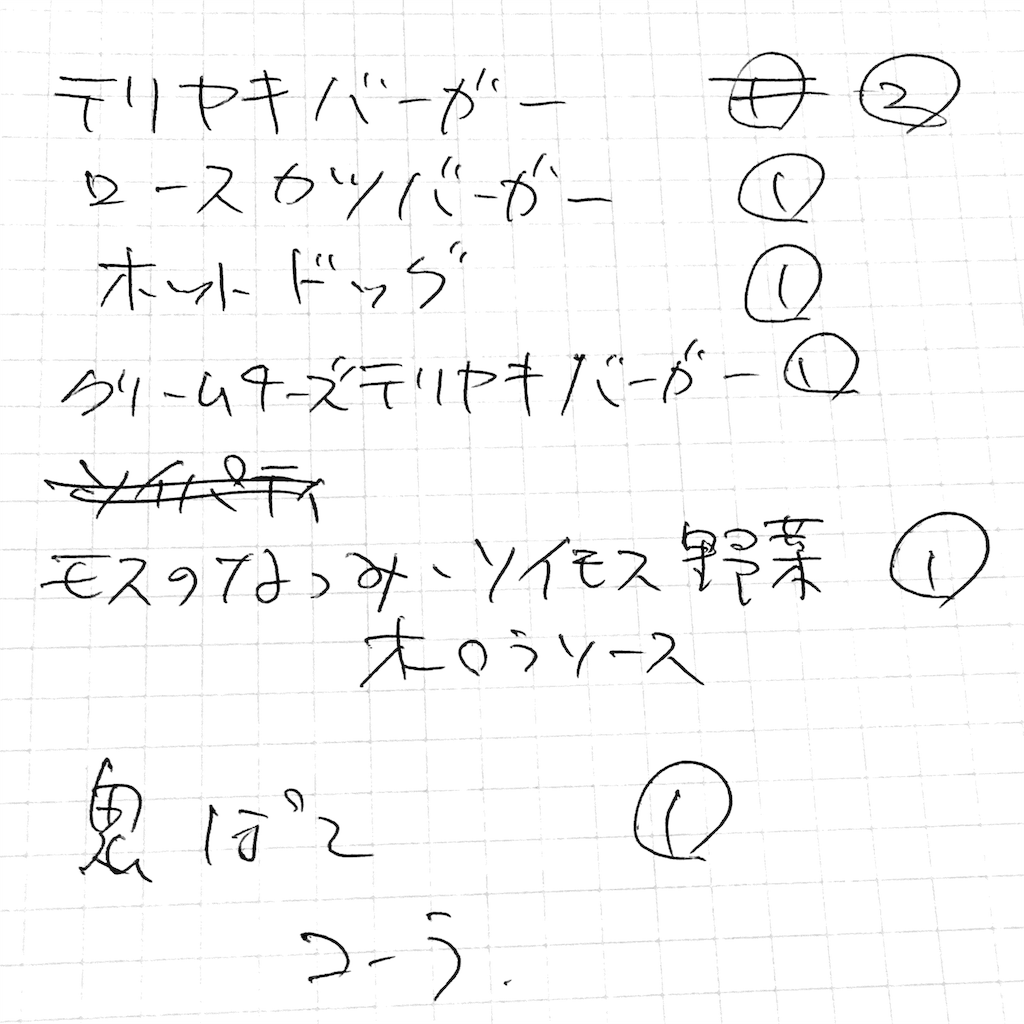 テリヤキバーガー ① ②
ロースカツバーガー ①
ホットドッグ ①
クリームチーズテリヤキバーガー ①
ソイパティ
モスのなつみ、ソイモス野菜 ①
オロラソース
鬼ぽて ①
コーラ.